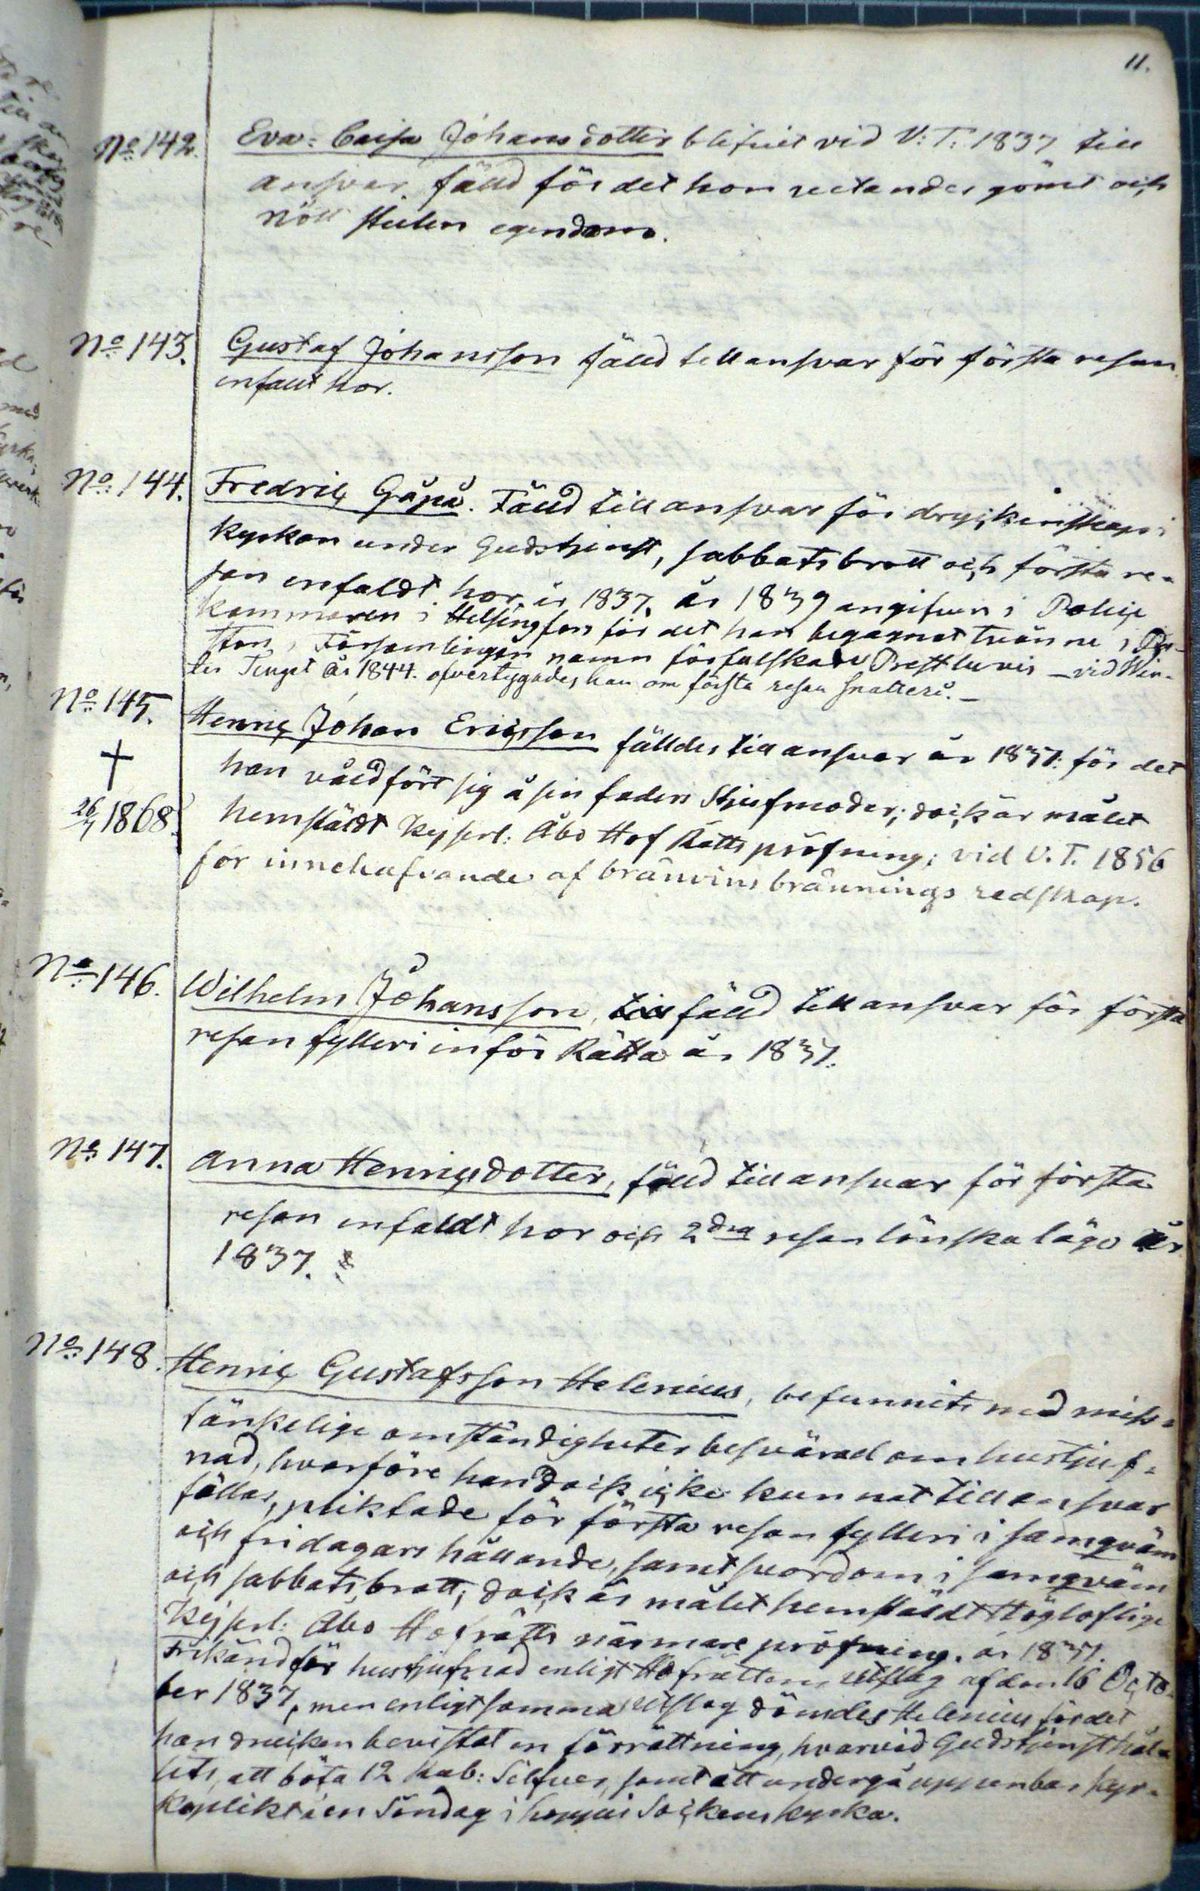 11.
No 142. Eva Caisa Johansdotter blifvit vid V: T. 1837 till
ansvar fälld för det hon vetandes gömt och
nött stulen egendom.
No 143. Gustaf Johansson fälld till ansvar för första resan
enfaldt hor.
No 144. Fredric Gåpå. Fälld till ansvar för dryckenskap i
kyrkan under Gudstjenst, sabbatsbrott och första re-
san enfaldt hor år 1837. år 1839 angifven i Police
kammaren i Helsingfors för det han begagnat tvänne, i Pa-
ston, Församlingens namn förfalskade Prestbevis – vid Win-
ter Tinget år 1844. öfvertygades han om första resan snatteri. –
No 145. Henric Johan Ericsson fälldes till ansvar år 1837. för det
han våldfört sig å sin faders Stjufmoder; dock är målet
hemstäldt Kejserl: Åbo Hof Rätts pröfning; vid V. T. 1856
† 26/ 1868. för innehafvande af bränvins brännings redskap.
No 146. Wilhelm Johansson, fälld till ansvar för första
resan fylleri inför Rätta år 1837.
No 147. Anna Henricsdotter, fälld till ansvar för första
resan enfaldt hor och 2dra resan lönskaläge år
1837.
No 148. Henric Gustafsson Helenius, befunnits med miss-
tänkelige omständigheter besvärad om hustjuf-
nad, hvarföre han dock icke kunnat till ansvar
fällas, pliktade för första resan fylleri i samqväm
och fridagars hållande, samt svordom i samqväm
och sabbatsbrott; dock är målet hemstäldt Högloflige
Kejserl: Åbo Hofrätts närmare pröfning. år 1837.
Frikänd för hustjufnad enligt Hofrättens utslag af den 16 Octo-
ber 1837, men enligt samma utslag dömdes Helenius för det
han drucken bevistat en förrättning, hvarvid Gudstjenst hål-
lits, att böta 12 Rub: Silfver, samt att undergå uppenbar kyr-
koplikt en Söndag i Loppis Sockens kyrka.